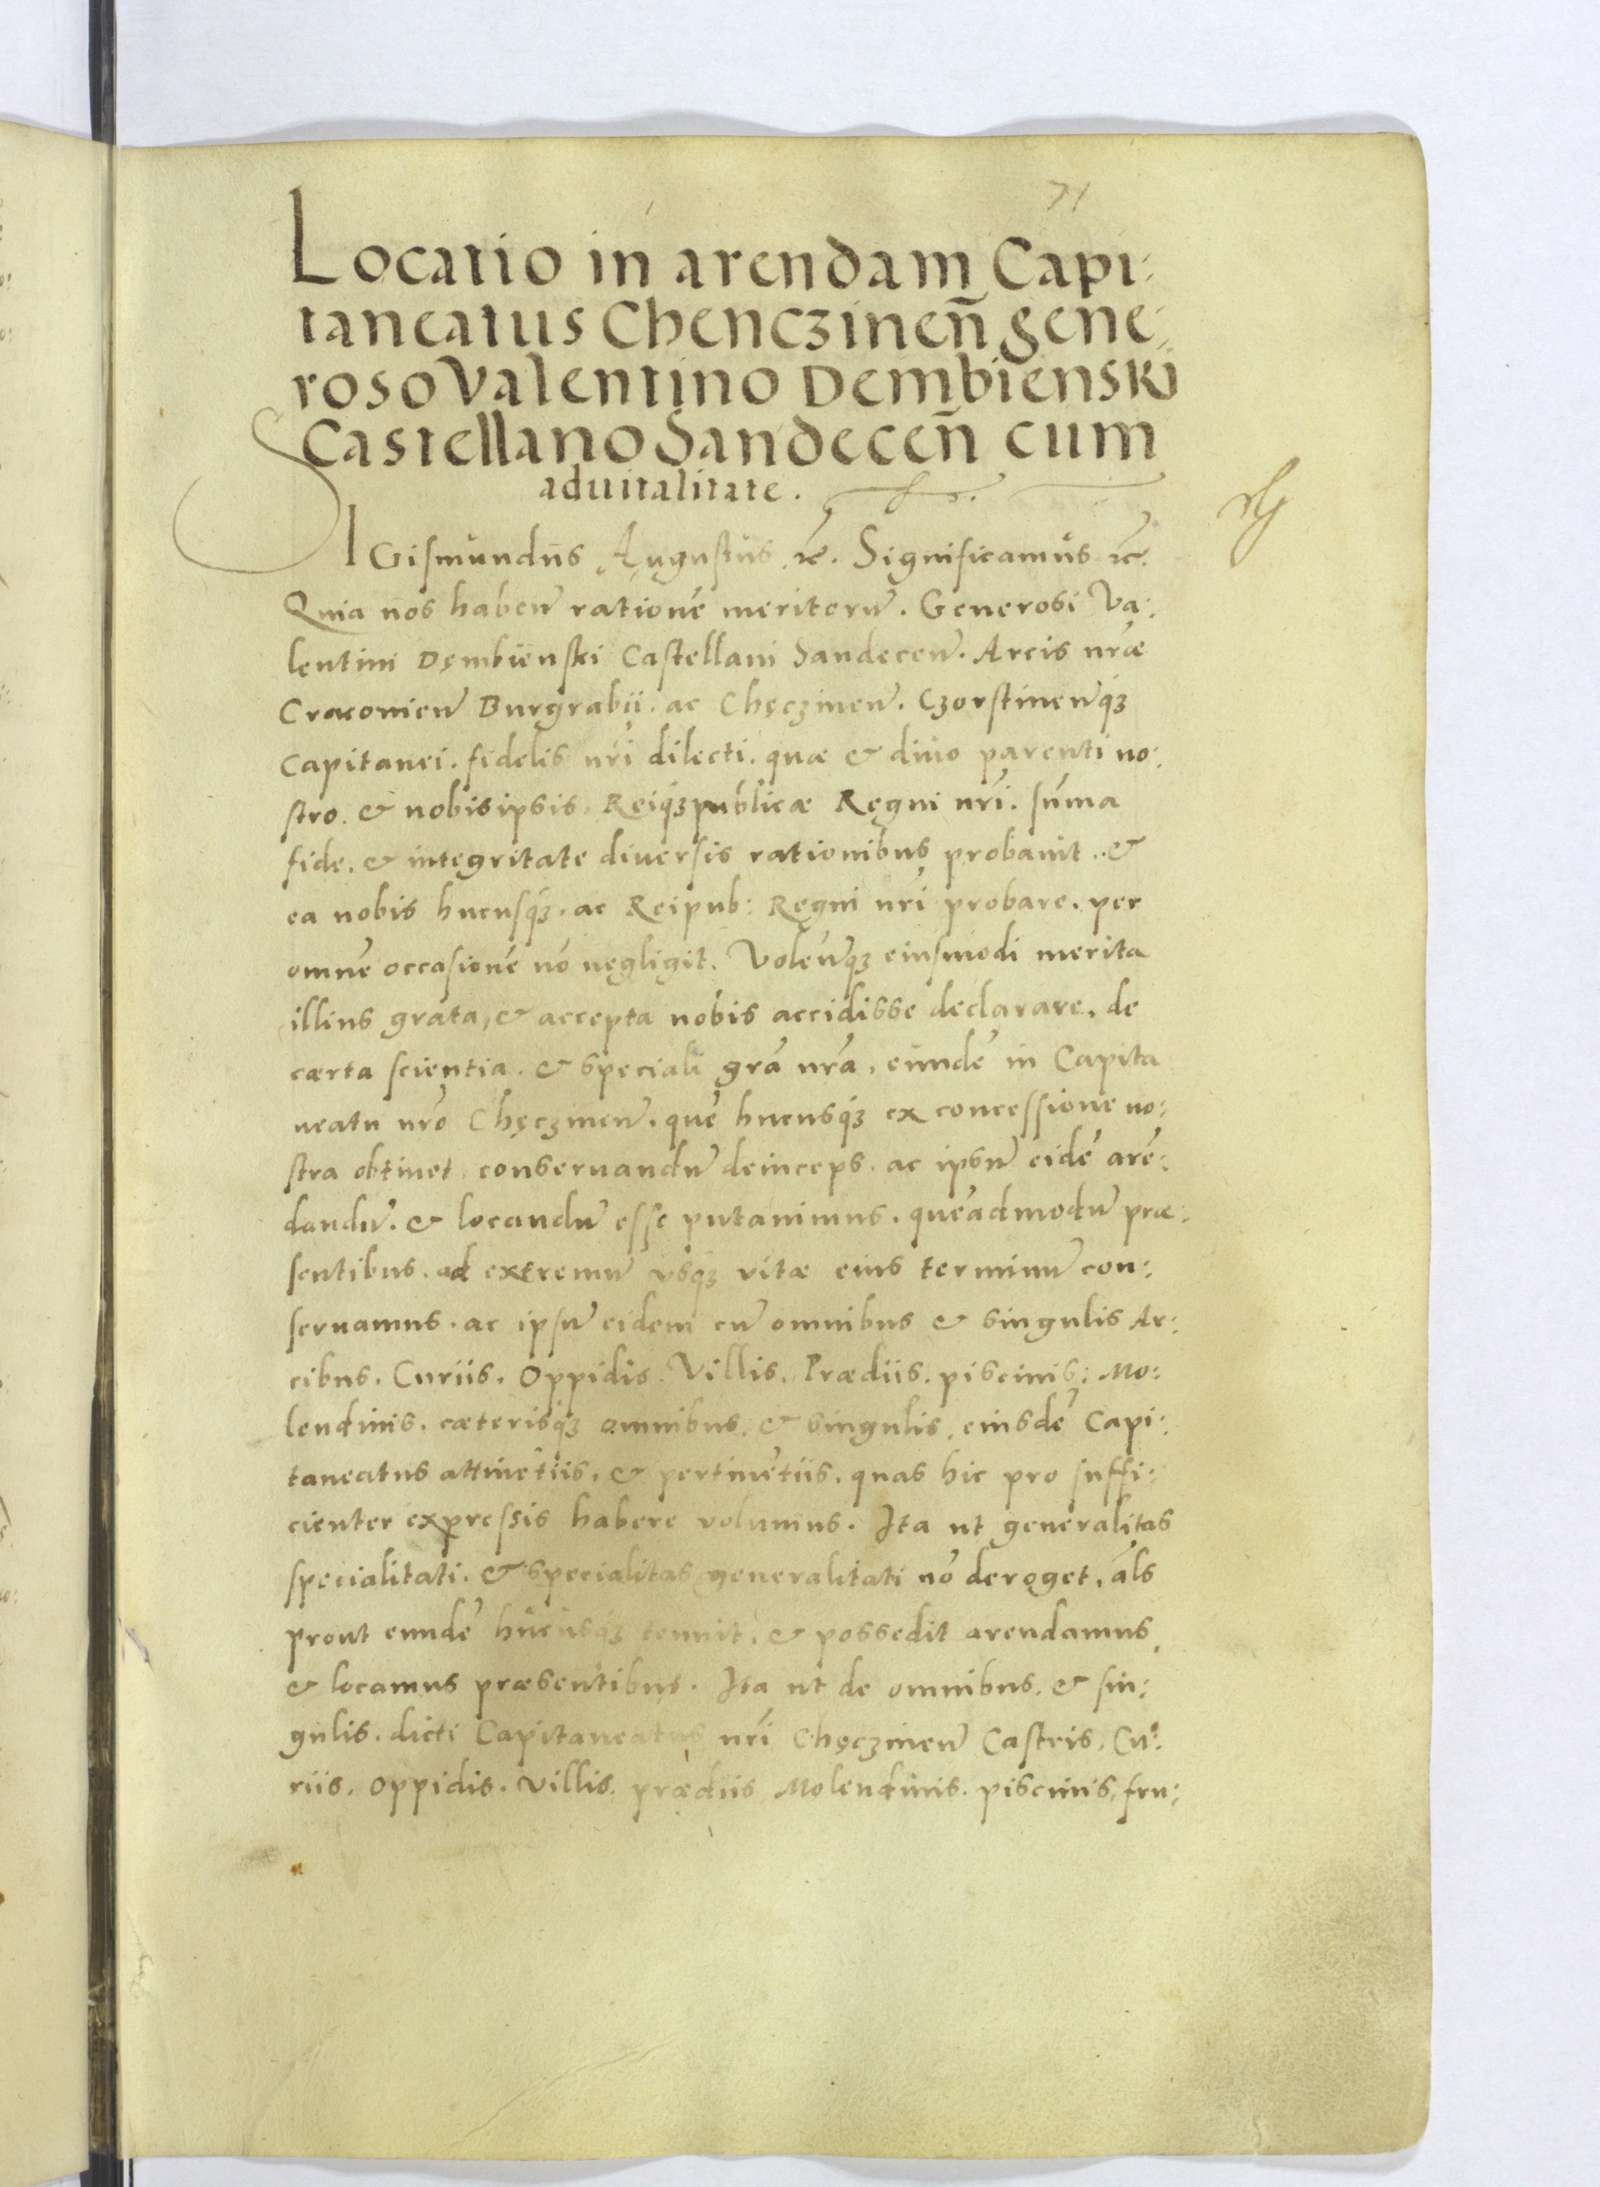 71
Locatio in arendam Capi:
taneatus Chenczineñ gene:
roso Valentino Dembienski
Castellano Sandeceñ cum
aduitalitate.
SIGismundus Augustus etc̃. Significamus etc̃.
Quia nos habeñ rationẽ meritorũ. Generosi Va:
lentini Dęmbienski Castellani Sandeceñ. Arcis nr̃æ
Cracovieñ Burgrabii. ac Chęczineñ. Czorstineñqꝫ
Capitanei. fidelis nr̃i dilecti. quæ & diuo parenti no:
stro. & nobis ipsis. Reiqꝫ publicæ Regni nr̃i. sũma
fide. & integritate diversis rationibus probavit. &
ea nobis hucusqꝫ. ac Reipub: Regni nr̃i probare. per
omnẽ occasionẽ nõ negligit. Volẽñqꝫ eiusmodi merita
illius grata, & accepta nobis accidisse declarare. de
cærta scientia. & speciali gr̃a nr̃a. eundẽ in Capita
neatu nr̃o Chęczineñ. quẽ hucusqꝫ ex concessione no:
stra obtinet. conservandũ deinceps. ac ipsũ eidẽ arẽ:
dandũ. & locandũ esse putauimus. quẽadmodũ præ:
sentibus. ad extremũ usqꝫ vitæ eius terminũ con:
servamus. ac ipsũ eidem cũ omnibus & singulis Ar:
cibus. Curiis. Oppidis. Villis. Prædiis. piscinis: Mo:
lendinis. cæterisqꝫ omnibus. & singulis. eiusdẽ Capi:
taneatus attinẽtiis. & pertinẽtiis. quas hic pro suffi:
cienter expressis habere volumus. Ita ut generalitas
specialitati. & specialitas generalitati nõ deroget, al̃s
prout eundẽ hucusqꝫ tenuit. & possedit arendamus
& locamus præsentibus. Ita ut de omnibus. & sin:
gulis. dicti Capitaneatus nr̃i Chęczineñ Castris. Cu:
riis. Oppidis. Villis. prædiis Molendinis. piscinis, fru: